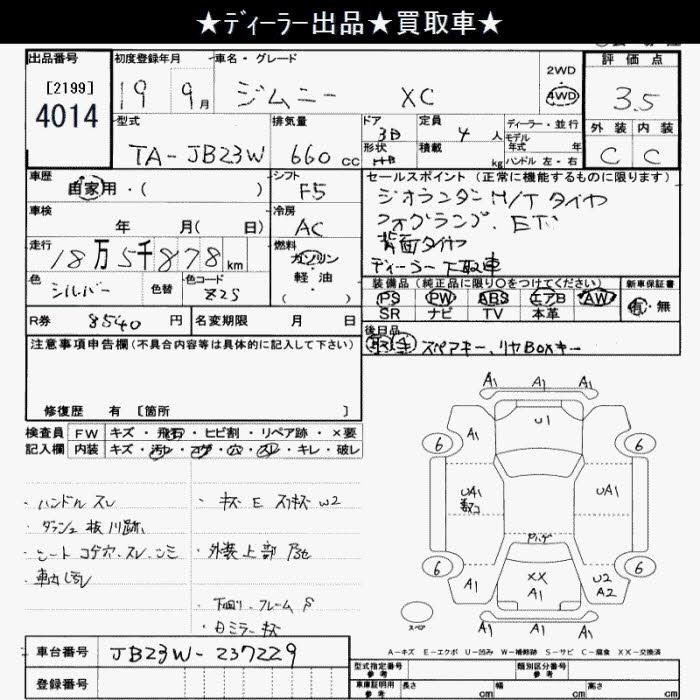 ★ディーラー出品★買取車★
出品番号 初度登録年月 車名・グレード 評価点
[2199] 4014
19 9月 ジムニー XC 2WD 4WD 3.5
型式 排気量 ドア 定員 ディーラー・並行 外装 内装
3D 4人 モデル年式 年
TA-JB23W 660cc 形状 HB 積載 kg ハンドル 左・右 C C
車歴 シフト セールスポイント(正常に機能するものに限ります)
自家用・( ) F5 ジオランダンM/Tタイヤ
車検 冷房 フォグランプ、
年 月( 日) AC 背面タイヤ
走行 燃料 ディーラー下取車
18万5千878km ガソリン
色 色替 色コード 軽油 装備品(純正品に限り○をつけてください) 新車保証書
シルバー Z2S ( ) PS PW ABS エアB AW 有・無
SR ナビ TV 本革
R券 8540円 名変期限 月 日 後日品
注意事項申告欄(不具合内容等は具体的に記入して下さい) 取 スペアキー、リヤBOXキー
修復歴 有 [箇所 ]
検査員 FW キズ・飛石・ヒビ割・リペア跡・×要
記入欄 内装 キズ・汚レ・コゲ・穴・スレ・キレ・破レ
A1 A1 A1
・ハンドルスレ ・キズE スリキズW2
・ダッシュ板
・シートコゲ穴、スレ、シミ ・外装上部
・下回り、フレームS
・ミラーキズ
6 A1 U1 6
UA1 UA1
6 A1 XX A1 U2 A2 6
スペア A1 A1 A1
A-キズ E-エクボ U-凹み W-補修跡 S-サビ C-腐食 XX-交換済
車台番号 JB23W-237229
型式指定番号 参考 類別区分番号 参考
登録番号 車庫証明用 参考 長さ cm 幅 cm 高さ cm